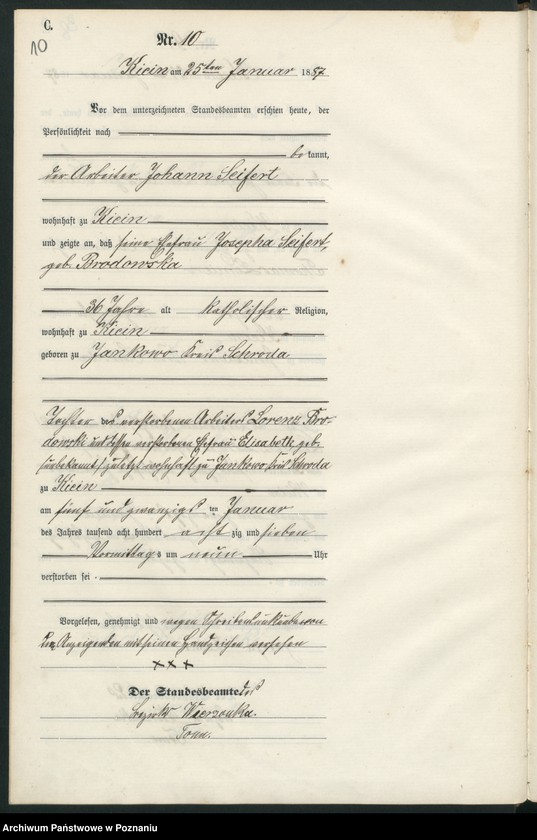 C.
10
Nr. 10
Kicin am 25ten Januar 1887
Vor dem unterzeichneten Standesbeamten erschien heute, der
Persönlichkeit nach
bekannt,
der Arbeiter Johann Seifert
wohnhaft zu Kicin
und zeigte an, daß seine Ehefrau Josepha Seifert,
geb. Brodowska
36 Jahre alt katholischer Religion,
wohnhaft zu Kicin
geboren zu Jankowo Kreis Schroda
Tochter des verstorbenen Arbeiters Lorenz Bro-
dowski und dessen verstorbenen Ehefrau Elisabeth geb.
(unbekannt) zuletzt wohnhaft zu Jankowo Kreis Schroda
zu Kicin
am fünf und zwanzigsten Januar
des Jahres tausend acht hundert achtzig und sieben
Vormittags um neun Uhr
verstorben sei.
Vorgelesen, genehmigt und wegen Schreibensunkunde von
dem Anzeigenden mit seinen Handzeichen versehen
+++
Der Standesbeamte des
Bezirks Wierzonka.
Archiwum Państwowe w Poznaniu